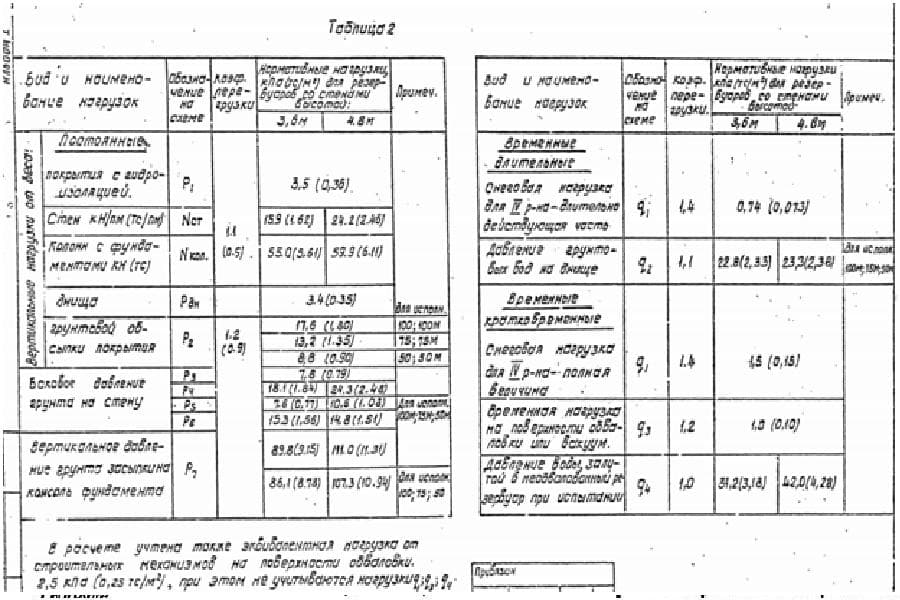 Таблица 2
Вид и наимено-
вание нагрузок
Обозна-
чение
на
схеме
Коэф.
пере-
грузки
Нормативные нагрузки,
кПа (тс/м²) для резер-
вуаров со стенами
высотой:
3,6м
4.8м
Примеч.
Вертикальные нагрузки от веса:
Постоянные
покрытия с гидро-
изоляцией.
P1
3,5 (0,36)
Стен кН/пм (тс/пм)
Nст
1.1
(0.9)
15.9 (1.62)
24.2 (2.46)
Колонн с фунда-
ментами кН (тс)
Nкол.
55.0 (5.61)
59.9 (6.11)
днища
Pдн
3.4 (0.35)
грунтовой об-
сыпки покрытия
P2
1.2
(0.9)
Для исполн.
17,6 (1.80)
100; 100М
13,2 (1.35)
75; 75М
8,8 (0.90)
50; 50М
Боковое давление
грунта на стену
P3
7.8 (0.79)
P4
18.1 (1.84)
24.3 (2.48)
P5
7.6 (0.77)
10.6 (1.08)
P6
15.3 (1,56)
14.8 (1.51)
Для исполн.
100М; 75М; 50М
Вертикальное давле-
ние грунта засыпки на
консоль фундамента
P7
89.8 (9.15)
111.0 (11.31)
86,1 (8.78)
107.3 (10.94)
Для исполн.
100; 75; 50
В расчете учтена также эквивалентная нагрузка от
строительных механизмов на поверхности обваловки.
2,5 кПа (0,25 тс/м²), при этом не учитываются нагрузки q1; q3; q4
Вид и наимено-
вание нагрузок
Обозна-
чение
на
схеме
Коэфф.
пере-
грузки.
Нормативные нагрузки
кПа (тс/м²) для резер-
вуаров со стенами
высотой
3,6м
4.8м
Примеч.
Временные
длительные
Снеговая нагрузка
для IV р-на-длительно
действующая часть
q1
1,4
0,74 (0,073)
Давление грунто-
вых вод на днище
q2
1,1
22.8 (2,33)
23,3 (2,38)
Для исполн.
100М; 75М; 50М
Временные
кратковременные
Снеговая нагрузка
для IV р-на-полная
величина
q1
1.4
1,5 (0,15)
Временная нагрузка
на поверхности обва-
ловки или вакуум.
q3
1,2
1.0 (0,10)
Давление воды, зали-
той в необвалованный ре-
зервуар при испытании
q4
1,0
31,2 (3,18)
42,0 (4,28)
Привязан